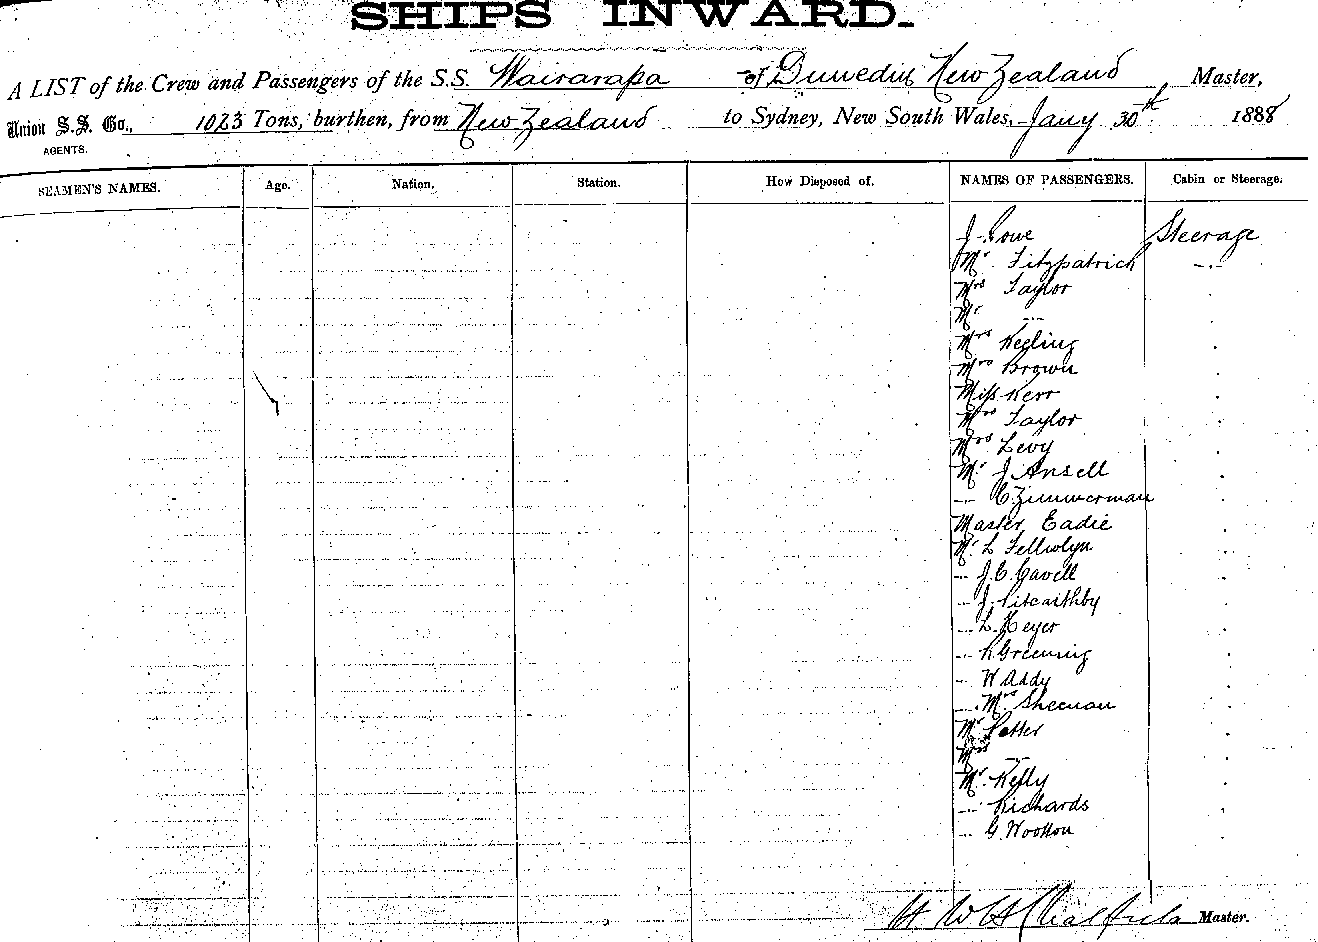 SHIPS INWARD.
A LIST of the Crew and Passengers of the S.S. Wairarapa of Dunedin New Zealand , Master,
Union S.S. Co., 1023 Tons, burthen, from New Zealand to Sydney, New South Wales, Jany 30th 1888
AGENTS.
SEAMEN'S NAMES. Age. Nation. Station. How Disposed of. NAMES OF PASSENGERS. Cabin or Steerage.
J. Steerage
Mr Fitzpatrick -"-
Mrs Taylor
Mr -"-
Mrs Keeling
Mrs Brown
Miss Kerr
Mrs Taylor
Mrs Levy
Mr J Ansell
-"- C Zimmerman
Master Eadie
Mr L
-"- J. C. Cavell
-"- J. Pitcaithby
-"- L.
-"- Greening
-"- W Addy
-"- Mrs Sheenan
Mr Potter
Mrs -"-
Mr Kelly
-"- Richards
-"- G. Wootton
H W H Master.